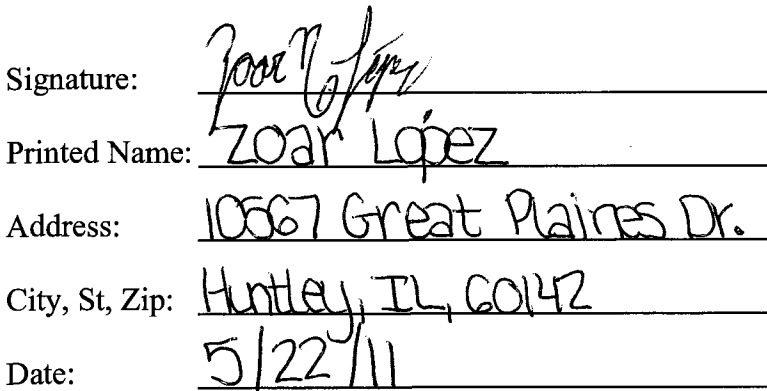 Signature: Zoar N Lopez
Printed Name: Zoar Lopez
Address: 10567 Great Plaines Dr.
City, St, Zip: Huntley, IL, 60142
Date: 5/22/11